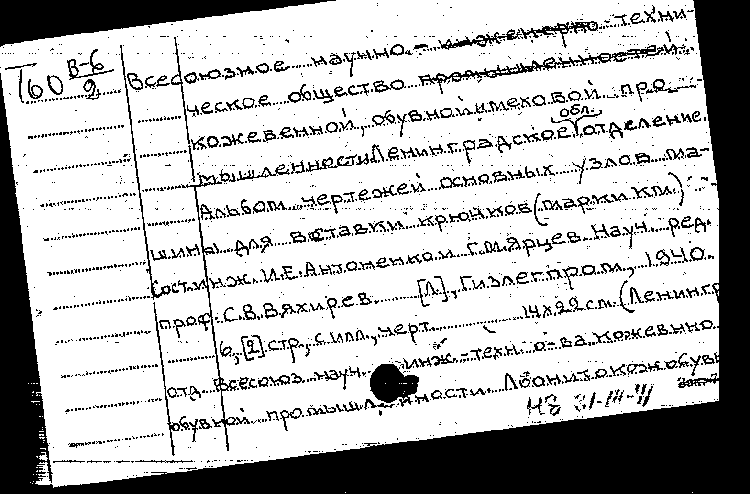 Т60 В-6/2
Всесоюзное научно-инженерно-техни-
ческое общество промышленностей
кожевенной, обувной и меховой про-
мышленности. Ленинградское обл. отделение.
Альбом чертежей основных узлов ма-
шины для вставки крючков (марки КМ)
Сост. инж. И.Е. Антоненко и Г.М. Ярцев. Науч. ред.
проф. С.В. Вяхирев. [Л], Гизлегпром, 1940.
6, [2] стр., с илл., черт. 14х22 см. (Ленингр
отд. Всесоюз. науч. инж.-техн. о-ва кожевнно
обувной промышленности. Лоонитокожобувь
НБ 31-14-41